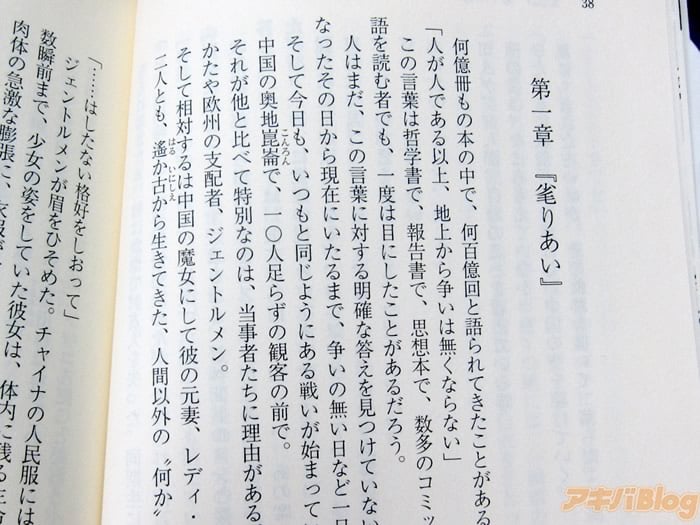 38
第一章 『毟りあい』
何億冊もの本の中で、何百億回と語られてきたことがある
「人が人である以上、地上から争いは無くならない」
この言葉は哲学書で、報告書で、思想本で、数多のコミッ
語を読む者でも、一度は目にしたことがあるだろう。
人はまだ、この言葉に対する明確な答えを見つけていない
なったその日から現在にいたるまで、争いの無い日など一
そして今日も、いつもと同じようにある戦いが始まって
中国の奥地崑崙こんろんで、一〇人足らずの観客の前で。
それが他と比べて特別なのは、当事者たちに理由がある
かたや欧州の支配者、ジェントルメン。
そして相対するは中国の魔女にして彼の元妻、レディ・
二人とも、遙はるか古いにしえから生きてきた、人間以外の〝何か〟
「……はしたない格好をしおって」
ジェントルメンが眉をひそめた。チャイナの人民服には
数瞬前まで、少女の姿をしていた彼女は、体内に残る
肉体の急激な膨張に、衣服が
アキバBlog